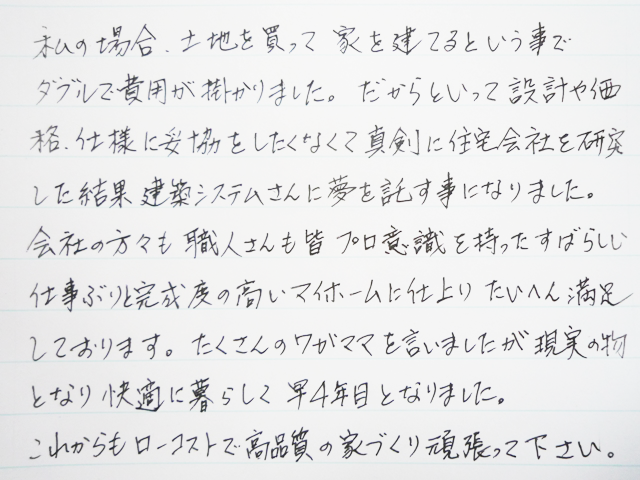 私の場合、土地を買って 家を建てるという事で
ダブルで費用が掛かりました。だからといって設計や価
格、仕様に妥協をしたくなくて真剣に住宅会社を研究
した結果 建築システムさんに夢を託す事になりました。
会社の方々も 職人さんも皆 プロ意識を持ったすばらしい
仕事ぶりと完成度の高いマイホームに仕上り たいへん満足
しております。たくさんのワガママを言いましたが現実の物
となり 快適に暮らして 早4年目となりました。
これからもローコストで高品質の家づくり頑張って下さい。